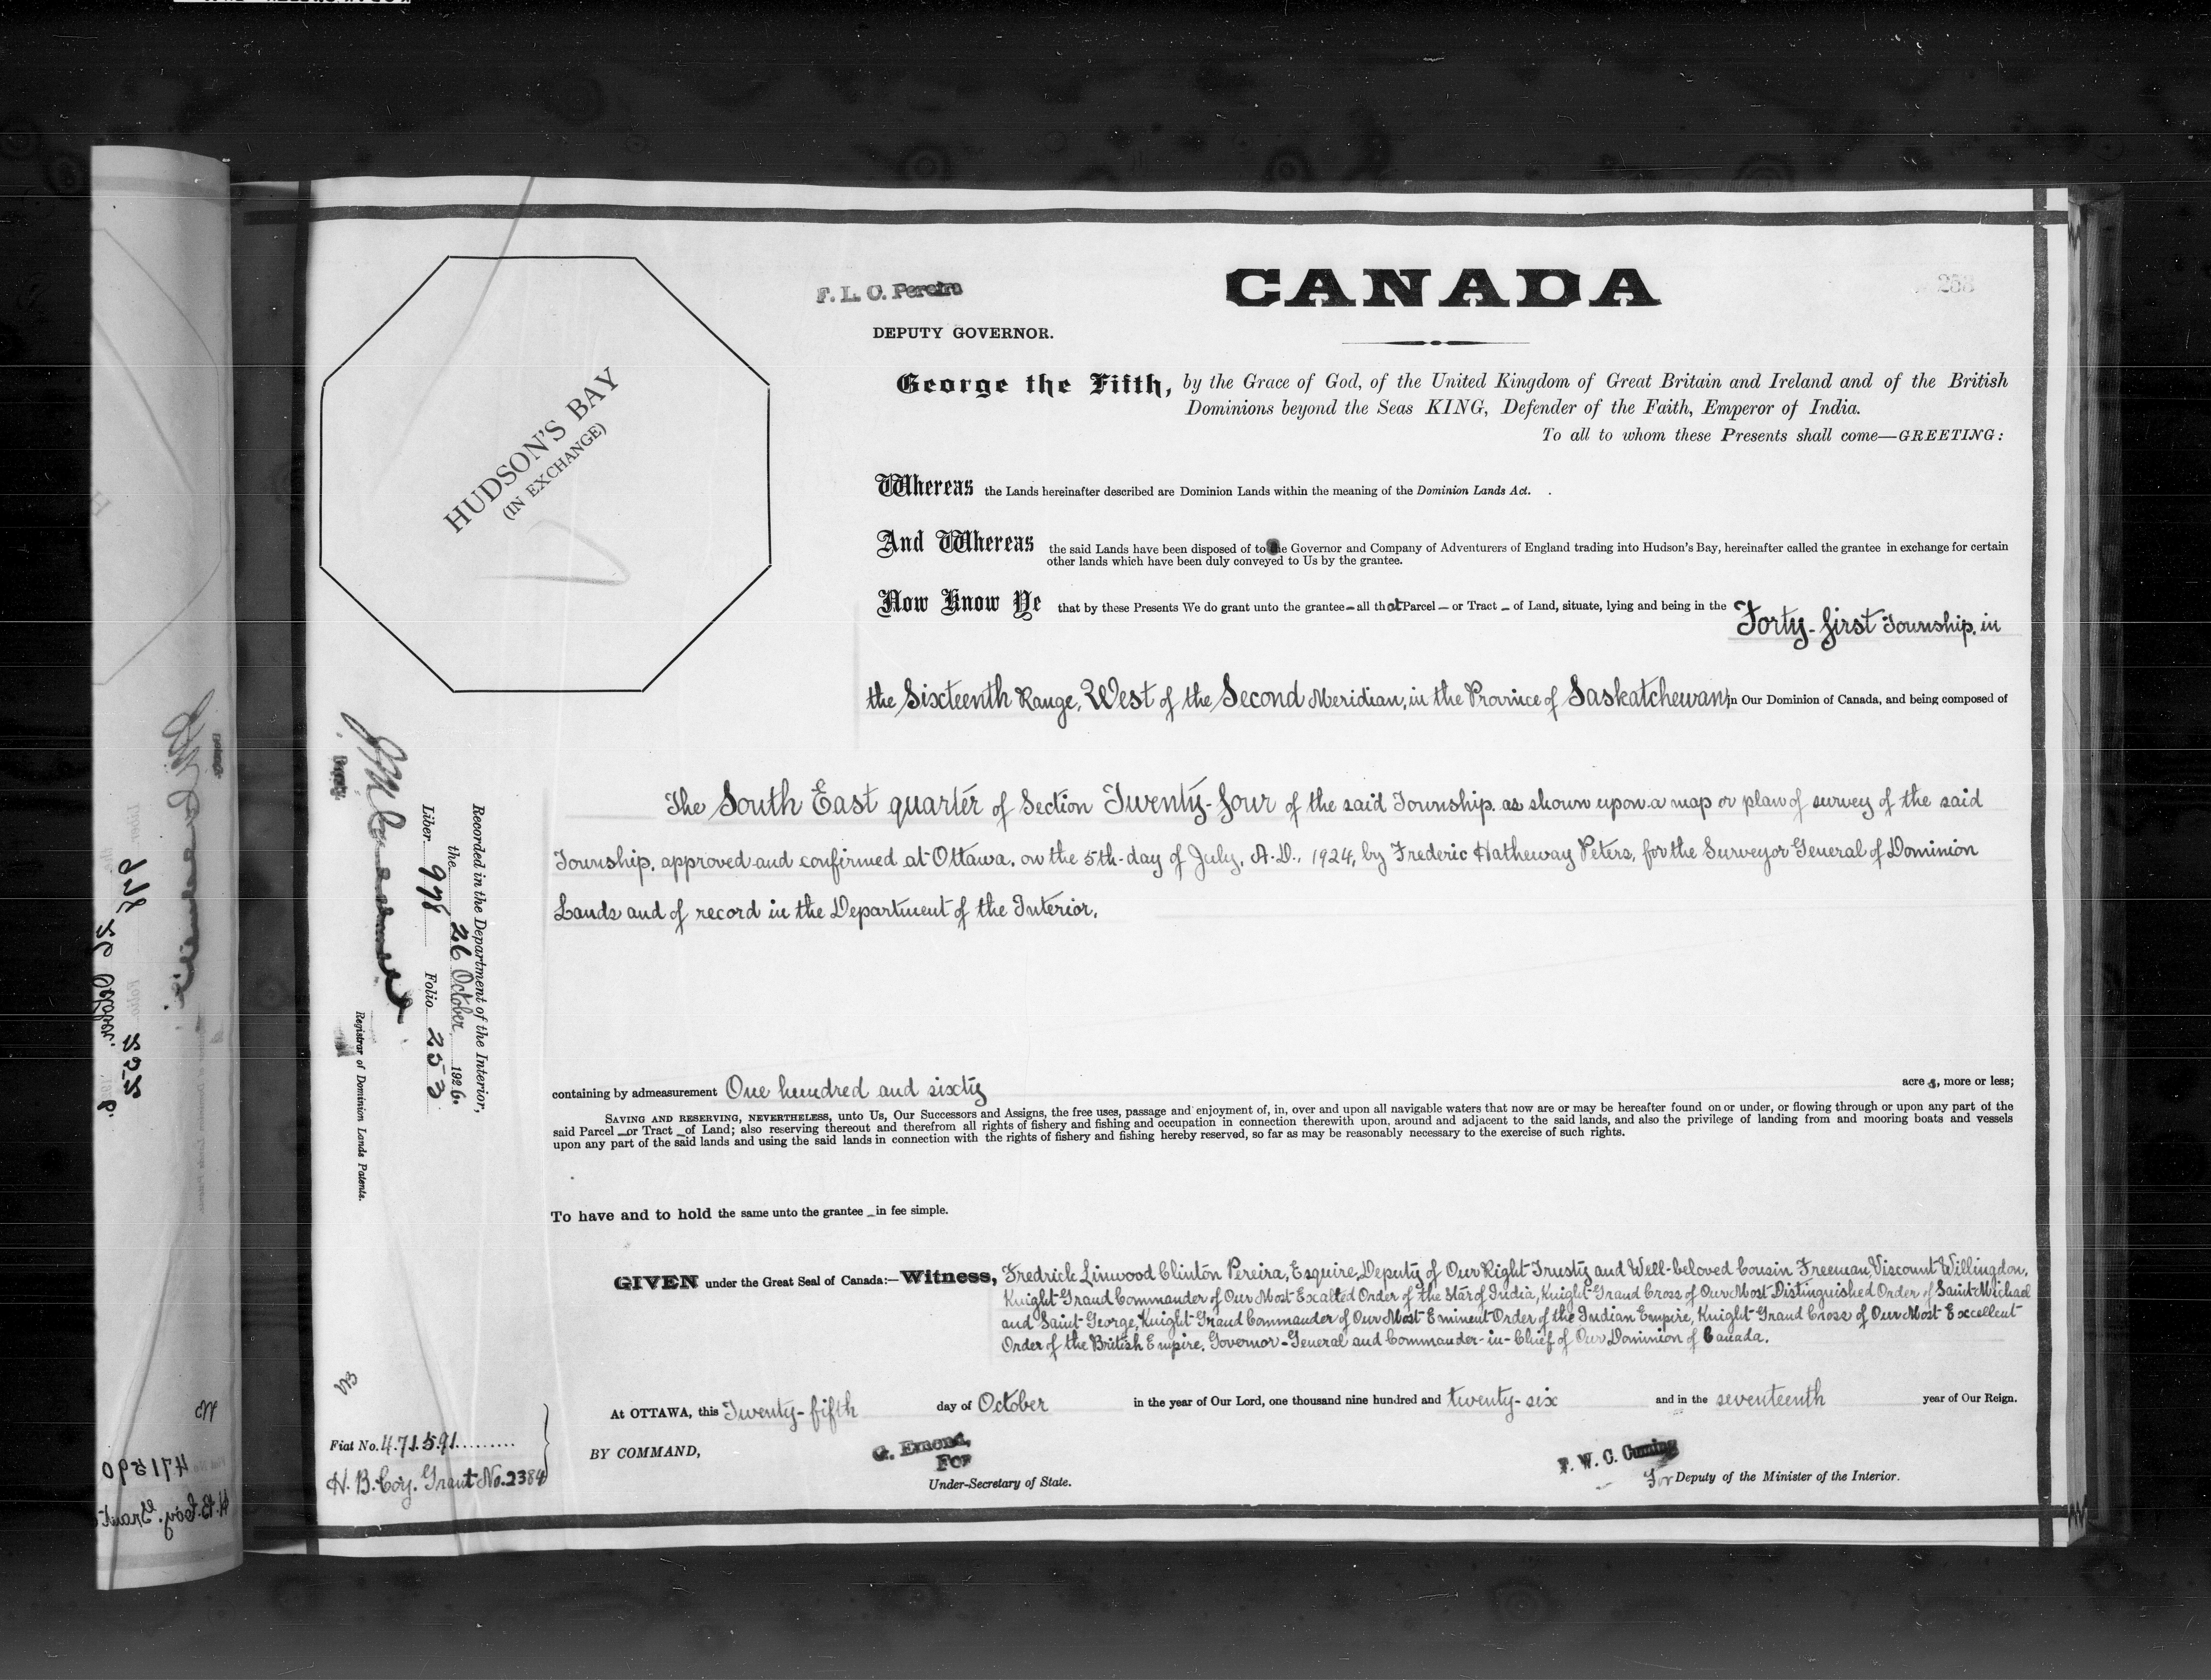 F. L. C. Pereira
DEPUTY GOVERNOR.
CANADA
HUDSON'S BAY
(IN EXCHANGE)
George the Fifth, by the Grace of God, of the United Kingdom of Great Britain and Ireland and of the British
Dominions beyond the Seas KING, Defender of the Faith, Emperor of India.
To all to whom these Presents shall come—GREETING:
Whereas the Lands hereinafter described are Dominion Lands within the meaning of the Dominion Lands Act.
And Whereas the said Lands have been disposed of to the Governor and Company of Adventurers of England trading into Hudson's Bay, hereinafter called the grantee in exchange for certain
other lands which have been duly conveyed to Us by the grantee.
Now Know Ye that by these Presents We do grant unto the grantee—all that Parcel — or Tract — of Land, situate, lying and being in the Forty-first Township, in
the Sixteenth Range, West of the Second Meridian, in the Province of Saskatchewan, in Our Dominion of Canada, and being composed of
The South East quarter of Section Twenty-four of the said Township, as shown upon a map or plan of survey of the said
Township, approved and confirmed at Ottawa, on the 5th day of July, A.D., 1924, by Frederic Hatheway Peters, for the Surveyor General of Dominion
Lands and of record in the Department of the Interior.
containing by admeasurement One hundred and sixty acres, more or less;
SAVING AND RESERVING, NEVERTHELESS, unto Us, Our Successors and Assigns, the free uses, passage and enjoyment of, in, over and upon all navigable waters that now are or may be hereafter found on or under, or flowing through or upon any part of the
said Parcel — or Tract — of Land; also reserving thereout and therefrom all rights of fishery and fishing and occupation in connection therewith upon, around and adjacent to the said lands, and also the privilege of landing from and mooring boats and vessels
upon any part of the said lands and using the said lands in connection with the rights of fishery and fishing hereby reserved, so far as may be reasonably necessary to the exercise of such rights.
To have and to hold the same unto the grantee — in fee simple.
GIVEN under the Great Seal of Canada:—Witness, Fredrick Linwood Clinton Pereira, Esquire, Deputy of Our Right Trusty and Well-beloved Cousin Freeman, Viscount Willingdon,
Knight Grand Commander of Our Most Exalted Order of the Star of India, Knight Grand Cross of Our Most Distinguished Order of Saint Michael
and Saint George, Knight Grand Commander of Our Most Eminent Order of the Indian Empire, Knight Grand Cross of Our Most Excellent
Order of the British Empire, Governor-General and Commander-in-Chief of Our Dominion of Canada.
At OTTAWA, this Twenty-fifth day of October in the year of Our Lord, one thousand nine hundred and twenty-six and in the seventeenth year of Our Reign.
BY COMMAND,
G. Emond,
For
Under-Secretary of State.
F. W. C. Cuming
For Deputy of the Minister of the Interior.
Recorded in the Department of the Interior,
the 26 October 1926.
Liber 978 Folio 253
Deputy
Registrar of Dominion Lands Patents.
Fiat No. 471591
H. B. Coy. Grant No. 2384
471590
H.B. Coy. Grant